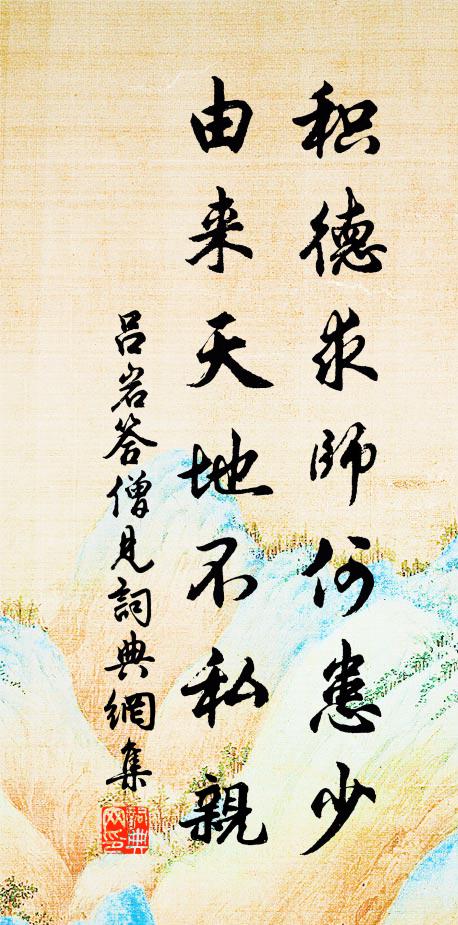 积德求師何患少
由来天地不私親
吕岩答僧見詞典網集
詞典網印